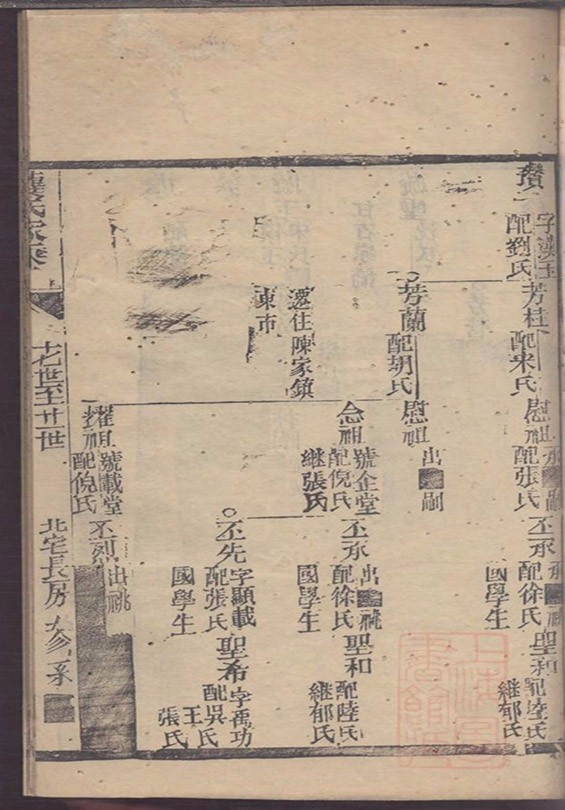 贊
字漢
配劉氏
芳桂
配宋氏
慰祖
承 嗣
配張氏
丕承
承
配徐氏
國學生
聖和
配陸氏
繼郁氏
芳蘭
配胡氏
慰祖
出 嗣
遷住陳家鎮
東市
念祖
號企堂
配倪氏
繼張氏
丕承
出
配徐氏
國學生
聖和
配陸氏
繼郁氏
丕先
字顯載
配張氏
國學生
聖希
字禹功
配吳氏
王氏
張氏
耀祖
號載堂
配倪氏
丕烈
出祧
氏家乘
上
世至廿世
北宅長房
上海圖書館藏